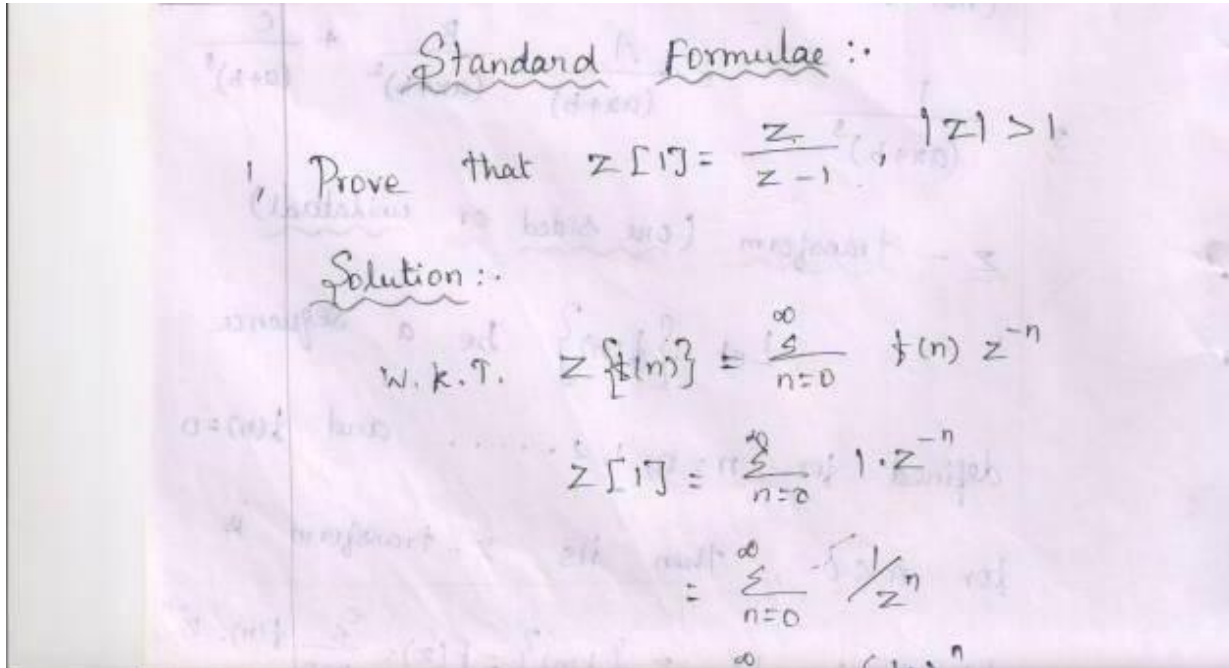 Standard Formulae :.
1, Prove that Z[1] = z/(z-1), |z| > 1.
Solution :.
W.K.T. Z{f(n)} = ∞Σn=0 f(n) z^-n
Z[1] = ∞Σn=0 1·z^-n
= ∞Σn=0 1/z^n